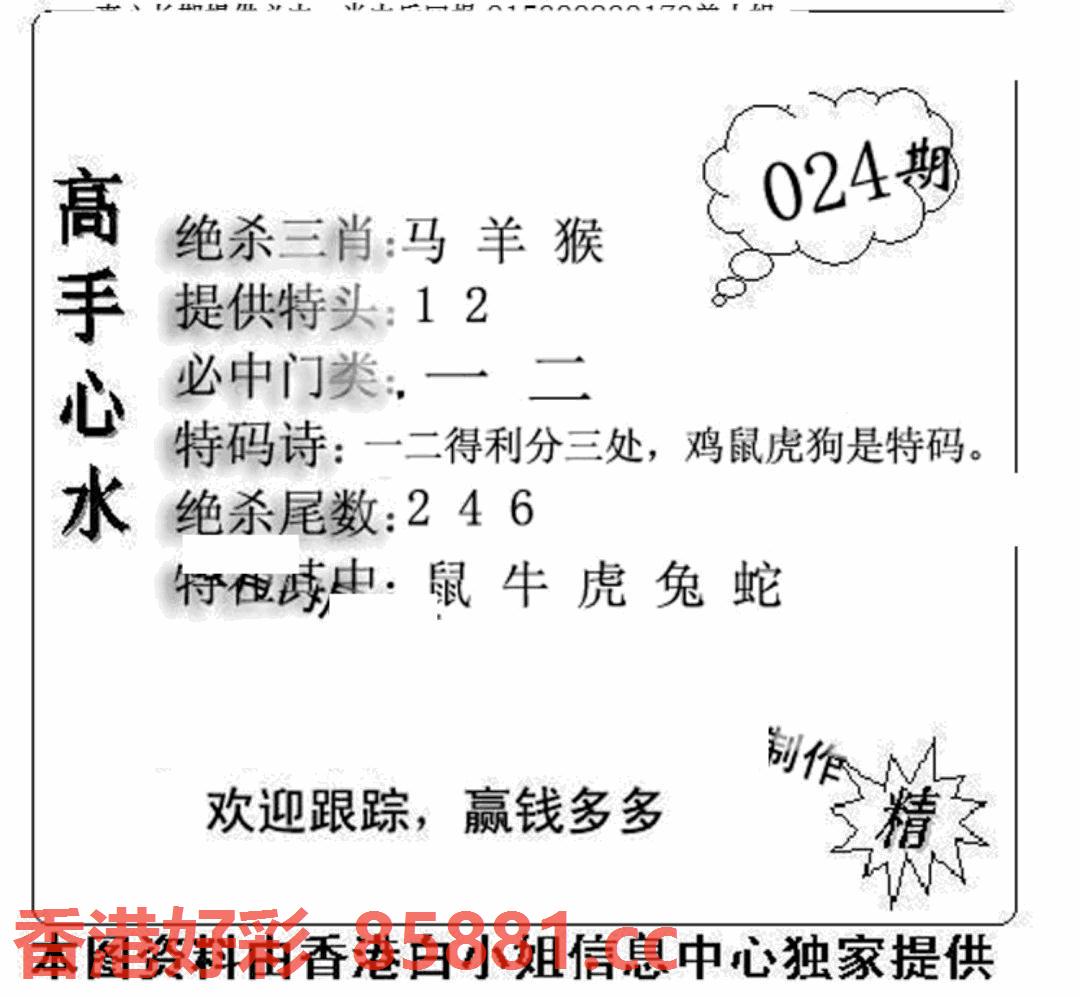 024期
高手心水
绝杀三肖:马 羊 猴
提供特头:1 2
必中门类:一 二
特码诗:一二得利分三处，鸡鼠虎狗是特码。
绝杀尾数:2 4 6
鼠 牛 虎 兔 蛇
制作
精
欢迎跟踪，赢钱多多
香港好彩 85881.cc
本图资料由香港白小姐信息中心独家提供